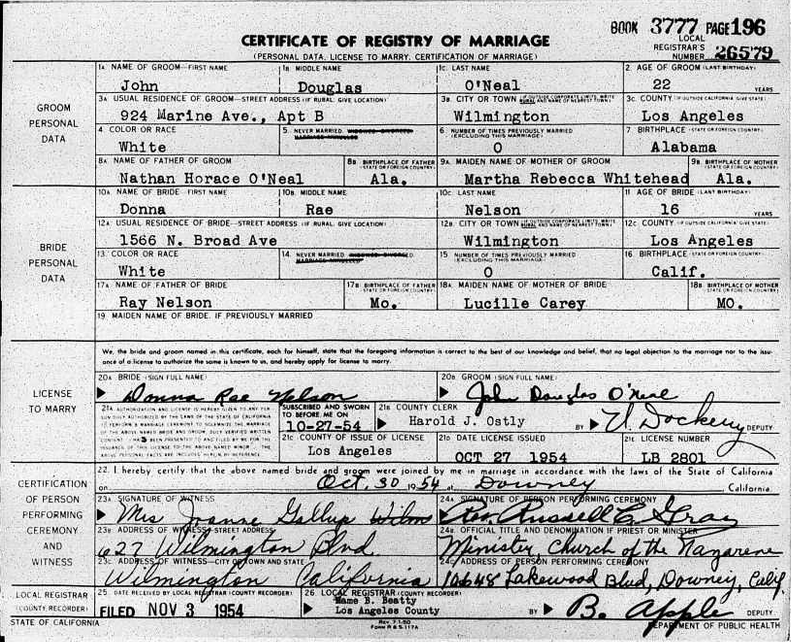 BOOK 3777 PAGE 196
LOCAL
REGISTRAR'S
NUMBER 26579
CERTIFICATE OF REGISTRY OF MARRIAGE
(PERSONAL DATA, LICENSE TO MARRY, CERTIFICATION OF MARRIAGE)
GROOM PERSONAL DATA
1A NAME OF GROOM—FIRST NAME 1B MIDDLE NAME 1C. LAST NAME 2. AGE OF GROOM (LAST BIRTHDAY)
John Douglas O'Neal 22 YEARS
3A USUAL RESIDENCE OF GROOM—STREET ADDRESS (IF RURAL, GIVE LOCATION) 3B CITY OR TOWN 3C COUNTY
924 Marine Ave., Apt B Wilmington Los Angeles
4 COLOR OR RACE 5. NEVER MARRIED 6 NUMBER OF TIMES PREVIOUSLY MARRIED (EXCLUDING THIS MARRIAGE) 7 BIRTHPLACE (STATE OR FOREIGN COUNTRY)
White 0 Alabama
8A NAME OF FATHER OF GROOM 8B BIRTHPLACE OF FATHER (STATE OR FOREIGN COUNTRY) 9A MAIDEN NAME OF MOTHER OF GROOM 9B BIRTHPLACE OF MOTHER
Nathan Horace O'Neal Ala. Martha Rebecca Whitehead Ala.
BRIDE PERSONAL DATA
10A NAME OF BRIDE FIRST NAME 10B. MIDDLE NAME 10C. LAST NAME 11 AGE OF BRIDE (LAST BIRTHDAY)
Donna Rae Nelson 16 YEARS
12A USUAL RESIDENCE OF BRIDE—STREET ADDRESS (IF RURAL, GIVE LOCATION) 12B. CITY OR TOWN 12C COUNTY
1566 N. Broad Ave Wilmington Los Angeles
13 COLOR OR RACE 14. NEVER MARRIED 15 NUMBER OF TIMES PREVIOUSLY MARRIED (EXCLUDING THIS MARRIAGE) 16 BIRTHPLACE (STATE OR FOREIGN COUNTRY)
White 0 Calif.
17A NAME OF FATHER OF BRIDE 17B BIRTHPLACE OF FATHER (STATE OR FOREIGN COUNTRY) 18A MAIDEN NAME OF MOTHER OF BRIDE 18B BIRTHPLACE OF MOTHER
Ray Nelson Mo. Lucille Carey MO.
19. MAIDEN NAME OF BRIDE, IF PREVIOUSLY MARRIED
LICENSE TO MARRY
We, the bride and groom named in this certificate, each for himself, state that the foregoing information is correct to the best of our knowledge and belief, that no legal objection to the marriage nor to the issuance of a license to authorize the same is known to us, and hereby apply for license to marry.
20A BRIDE (SIGN FULL NAME) 20B GROOM (SIGN FULL NAME)
Donna Rae Nelson John Douglas O'Neal
SUBSCRIBED AND SWORN TO BEFORE ME ON 10-27-54
21B COUNTY CLERK
Harold J. Ostly BY U. Dockery DEPUTY
21C COUNTY OF ISSUE OF LICENSE 21D DATE LICENSE ISSUED 21E LICENSE NUMBER
Los Angeles OCT 27 1954 LB 2801
CERTIFICATION OF PERSON PERFORMING CEREMONY AND WITNESS
22. I hereby certify that the above named bride and groom were joined by me in marriage in accordance with the laws of the State of California
on Oct. 30 1954 at Downey, California.
23A SIGNATURE OF WITNESS 24A SIGNATURE OF PERSON PERFORMING CEREMONY
Mrs Joanne Gallup Rev. Russell C. Gray
23B ADDRESS OF WITNESS—STREET ADDRESS 24B OFFICIAL TITLE AND DENOMINATION IF PRIEST OR MINISTER
627 Wilmington Blvd. Minister, Church of the Nazarene
23C. ADDRESS OF WITNESS—CITY OR TOWN AND STATE 24C ADDRESS OF PERSON PERFORMING CEREMONY
Wilmington California 10648 Lakewood Blvd, Downey, Calif.
LOCAL REGISTRAR (COUNTY RECORDER)
25 DATE RECEIVED BY LOCAL REGISTRAR (COUNTY RECORDER) 26 LOCAL REGISTRAR (COUNTY RECORDER)
FILED NOV 3 1954 Mame B. Beatty
Los Angeles County BY B. Apple DEPUTY
STATE OF CALIFORNIA Rev. 7-1-50 DEPARTMENT OF PUBLIC HEALTH
FORM R & S 117A